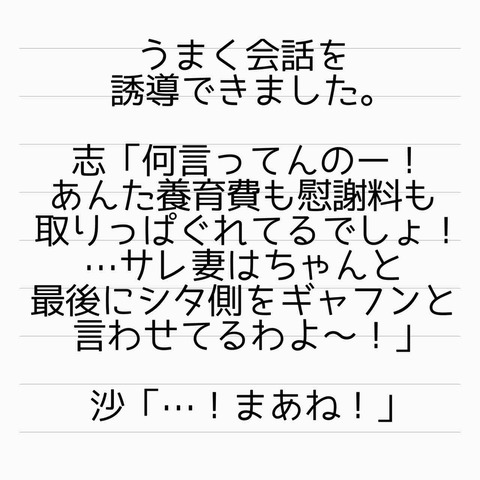 うまく会話を
誘導できました。
志「何言ってんのー！
あんた養育費も慰謝料も
取りっぱぐれてるでしょ！
…サレ妻はちゃんと
最後にシタ側をギャフンと
言わせてるわよ〜！」
沙「…！まあね！」